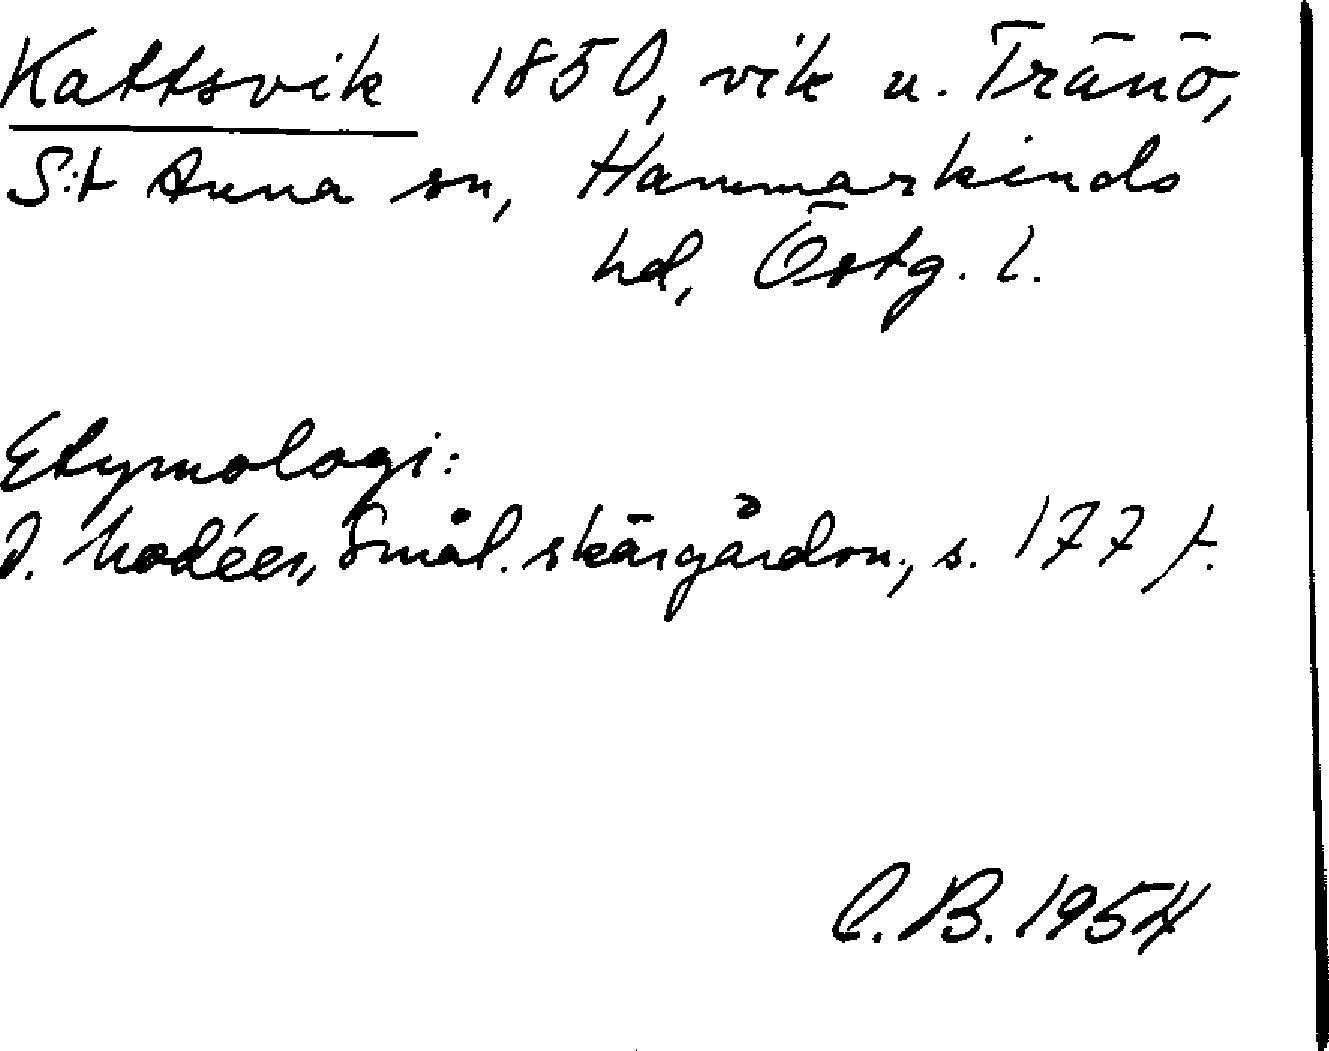 Kattsvik 1850, vik u. Tränö,
S:t Anna sn, Hammarkinds
hd, Östg. l.
Etymologi:
I. Modéer, Smål. skärgårdsn., s. 177 f.
C.B. 1954